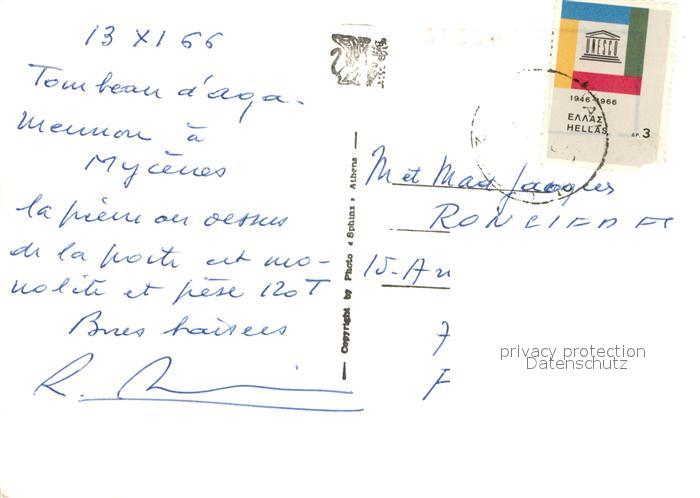 13 XI 66
Tombeau d'aga-
memnon à
Mycènes
la pierre au dessus
de la porte est mo-
nolite et pèse 120T
Bons baisers
R.
Copyright by Photo «Sphinx» Athens
UNESCO
1946-1966
ΕΛΛΑΣ
HELLAS
ΔΡ. 3
M et Mad Jacques
15-A
7
F
privacy protection
Datenschutz